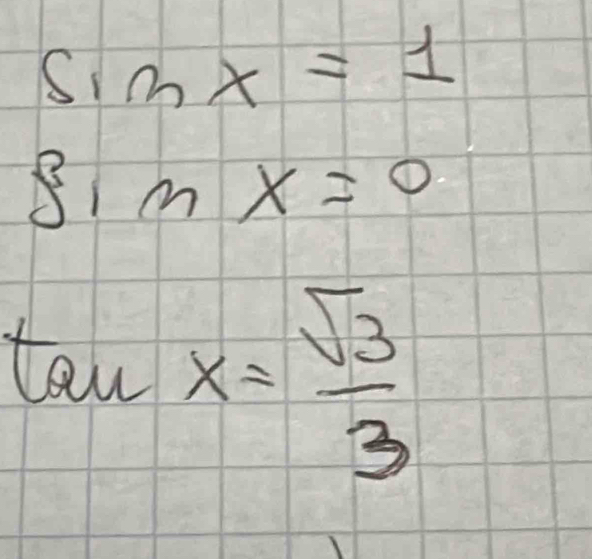 sin x = 1
sin x = 0
tan x = √3/3